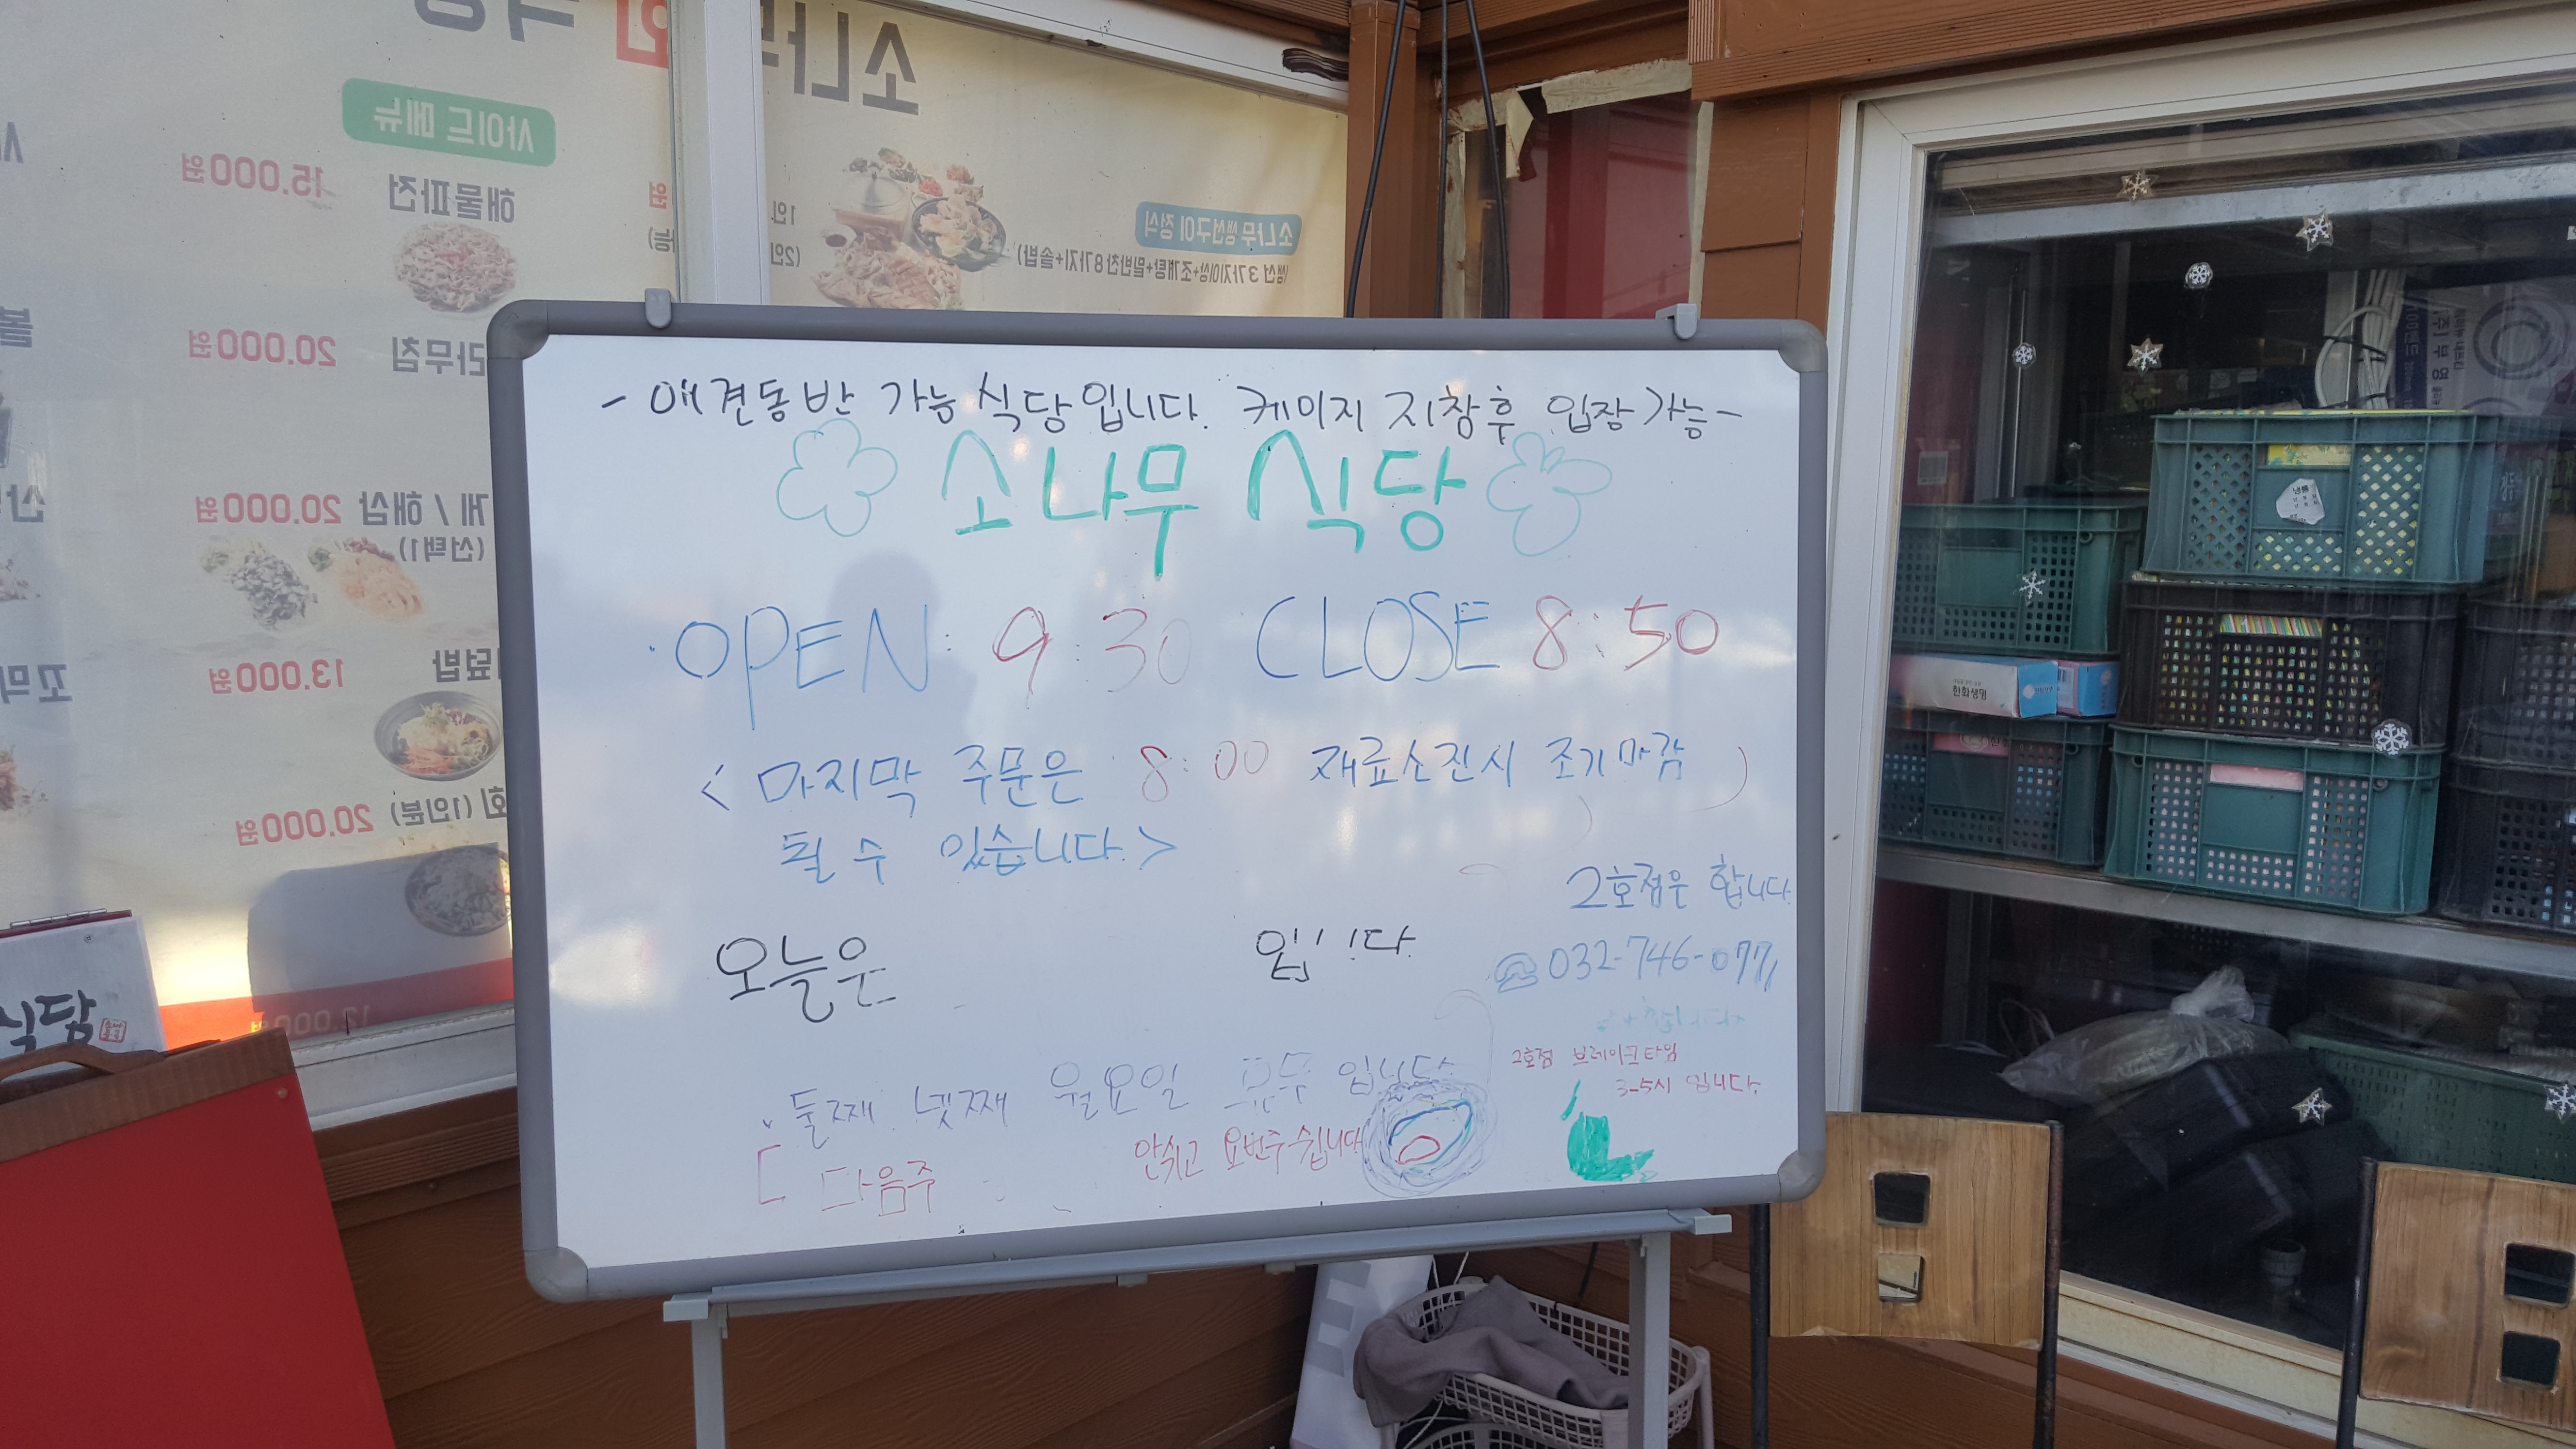 - 애견동반 가능 식당입니다. 케이지 지참후 입장가능 -
소나무 식당
OPEN: 9:30 CLOSE 8:50
< 마지막 주문은 8:00 재료소진시 조기마감
될 수 있습니다.>
2호점은 합니다
오늘은 입니다
☎032-746-077
2호점 브레이크타임
3-5시 입니다
둘째 넷째 월요일 휴무 입니다
안쉬고 요번주 쉽니다
[ 다음주
소나
사이드 메뉴
해물파전 15.000원
소나무 생선구이 정식
(생선 3가지이상+조개탕+밑반찬8가지+솥밥)
1인
(2인
라무침 20.000원
게 / 해삼 20.000원
(선택1)
덮밥 13.000원
회 (1인분) 20.000원
12.000원
꼬막
식당
한화생명